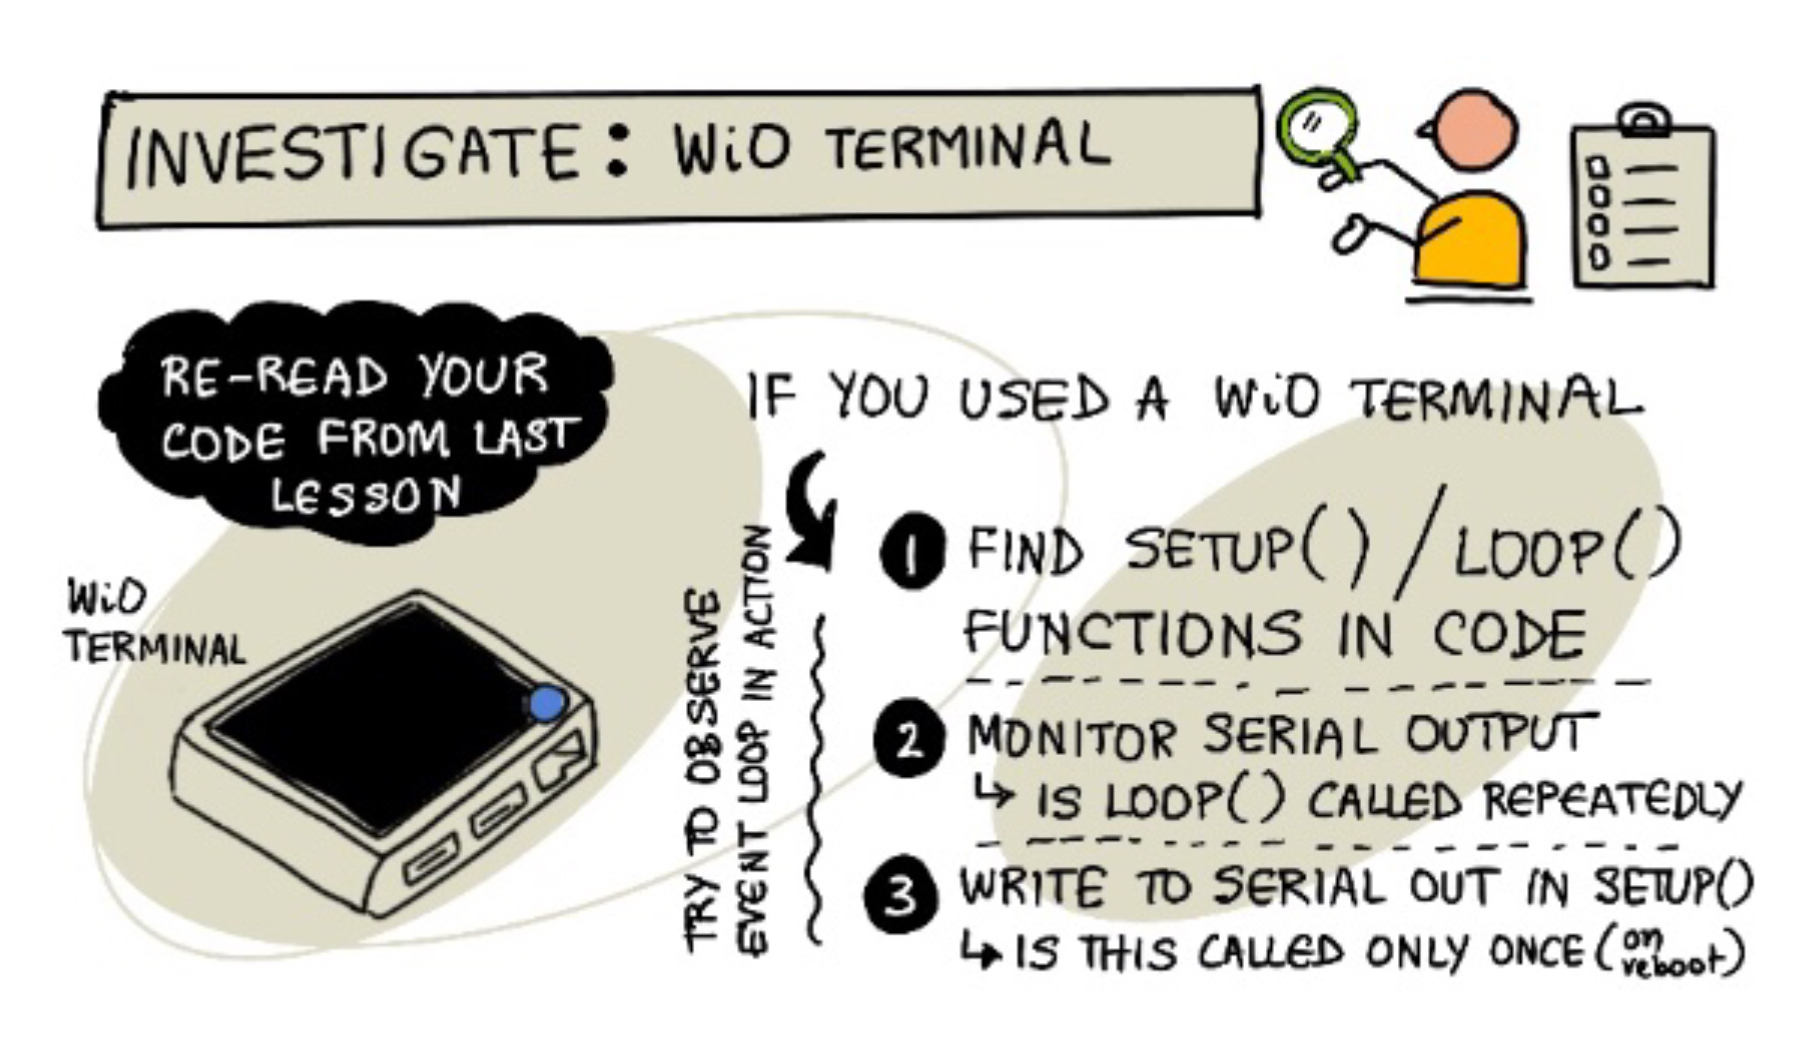 INVESTIGATE: WiO TERMINAL
RE-READ YOUR
CODE FROM LAST
LESSON
WiO
TERMINAL
IF YOU USED A WiO TERMINAL
TRY TO OBSERVE
EVENT LOOP IN ACTION
1 FIND SETUP() / LOOP()
FUNCTIONS IN CODE
2 MONITOR SERIAL OUTPUT
↳ IS LOOP() CALLED REPEATEDLY
3 WRITE TO SERIAL OUT IN SETUP()
↳ IS THIS CALLED ONLY ONCE (on
reboot)